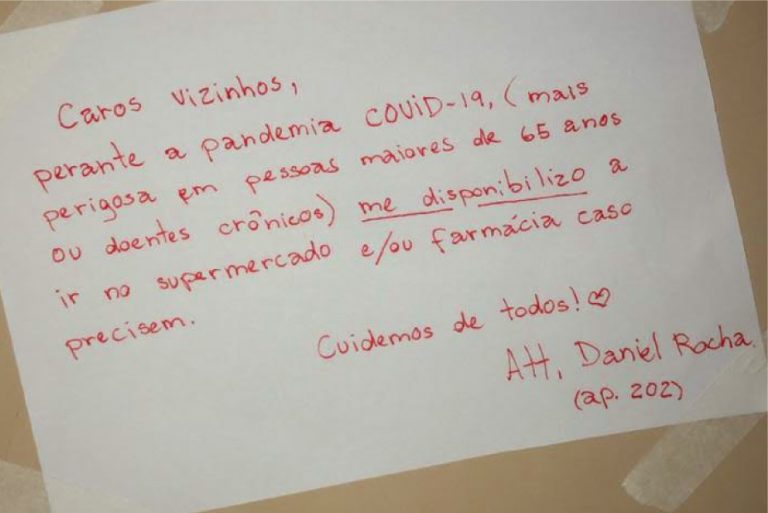 Caros vizinhos,
perante a pandemia COVID-19, (mais
perigosa em pessoas maiores de 65 anos
ou doentes crônicos) me disponibilizo a
ir no supermercado e/ou farmácia caso
precisem.
Cuidemos de todos! ♡
Att, Daniel Rocha
(ap. 202)